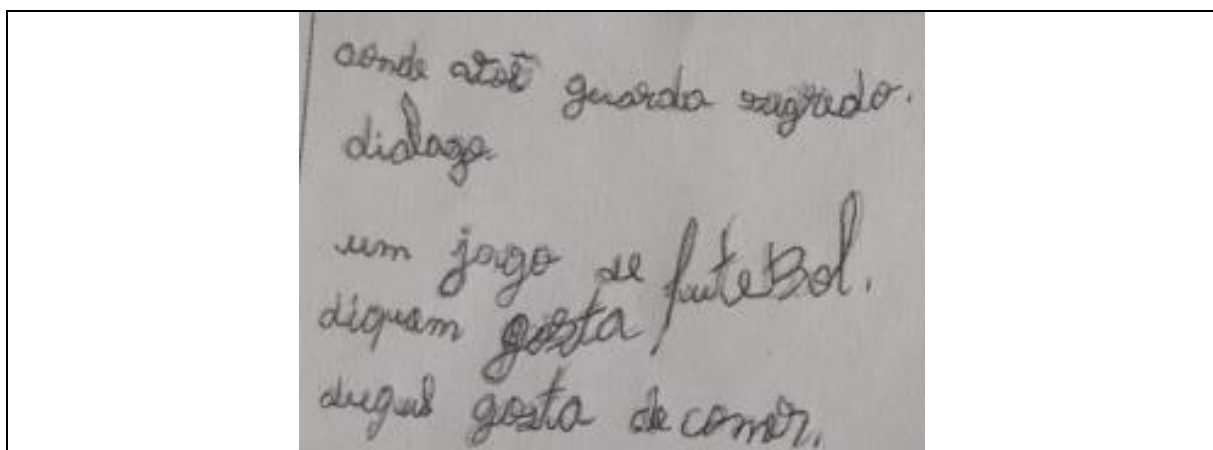 aonde guarda sagrado.
dialago.
um jogo de futeBol.
diquem gosta
duquê gosta de comer.